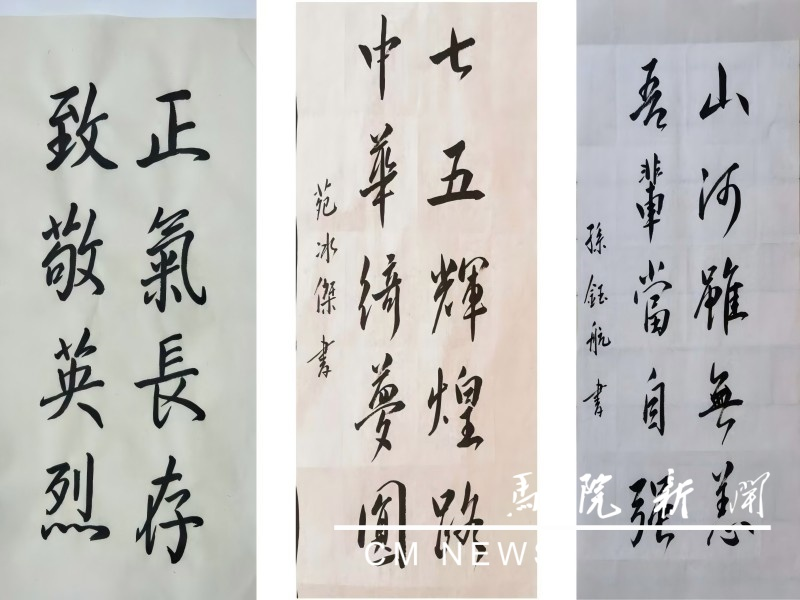 正氣長存
致敬英烈
七五輝煌路
中華綺夢圓
苑冰傑書
山河雖無恙
吾輩當自強
孫鈺航書
馬院新聞
CM NEWS